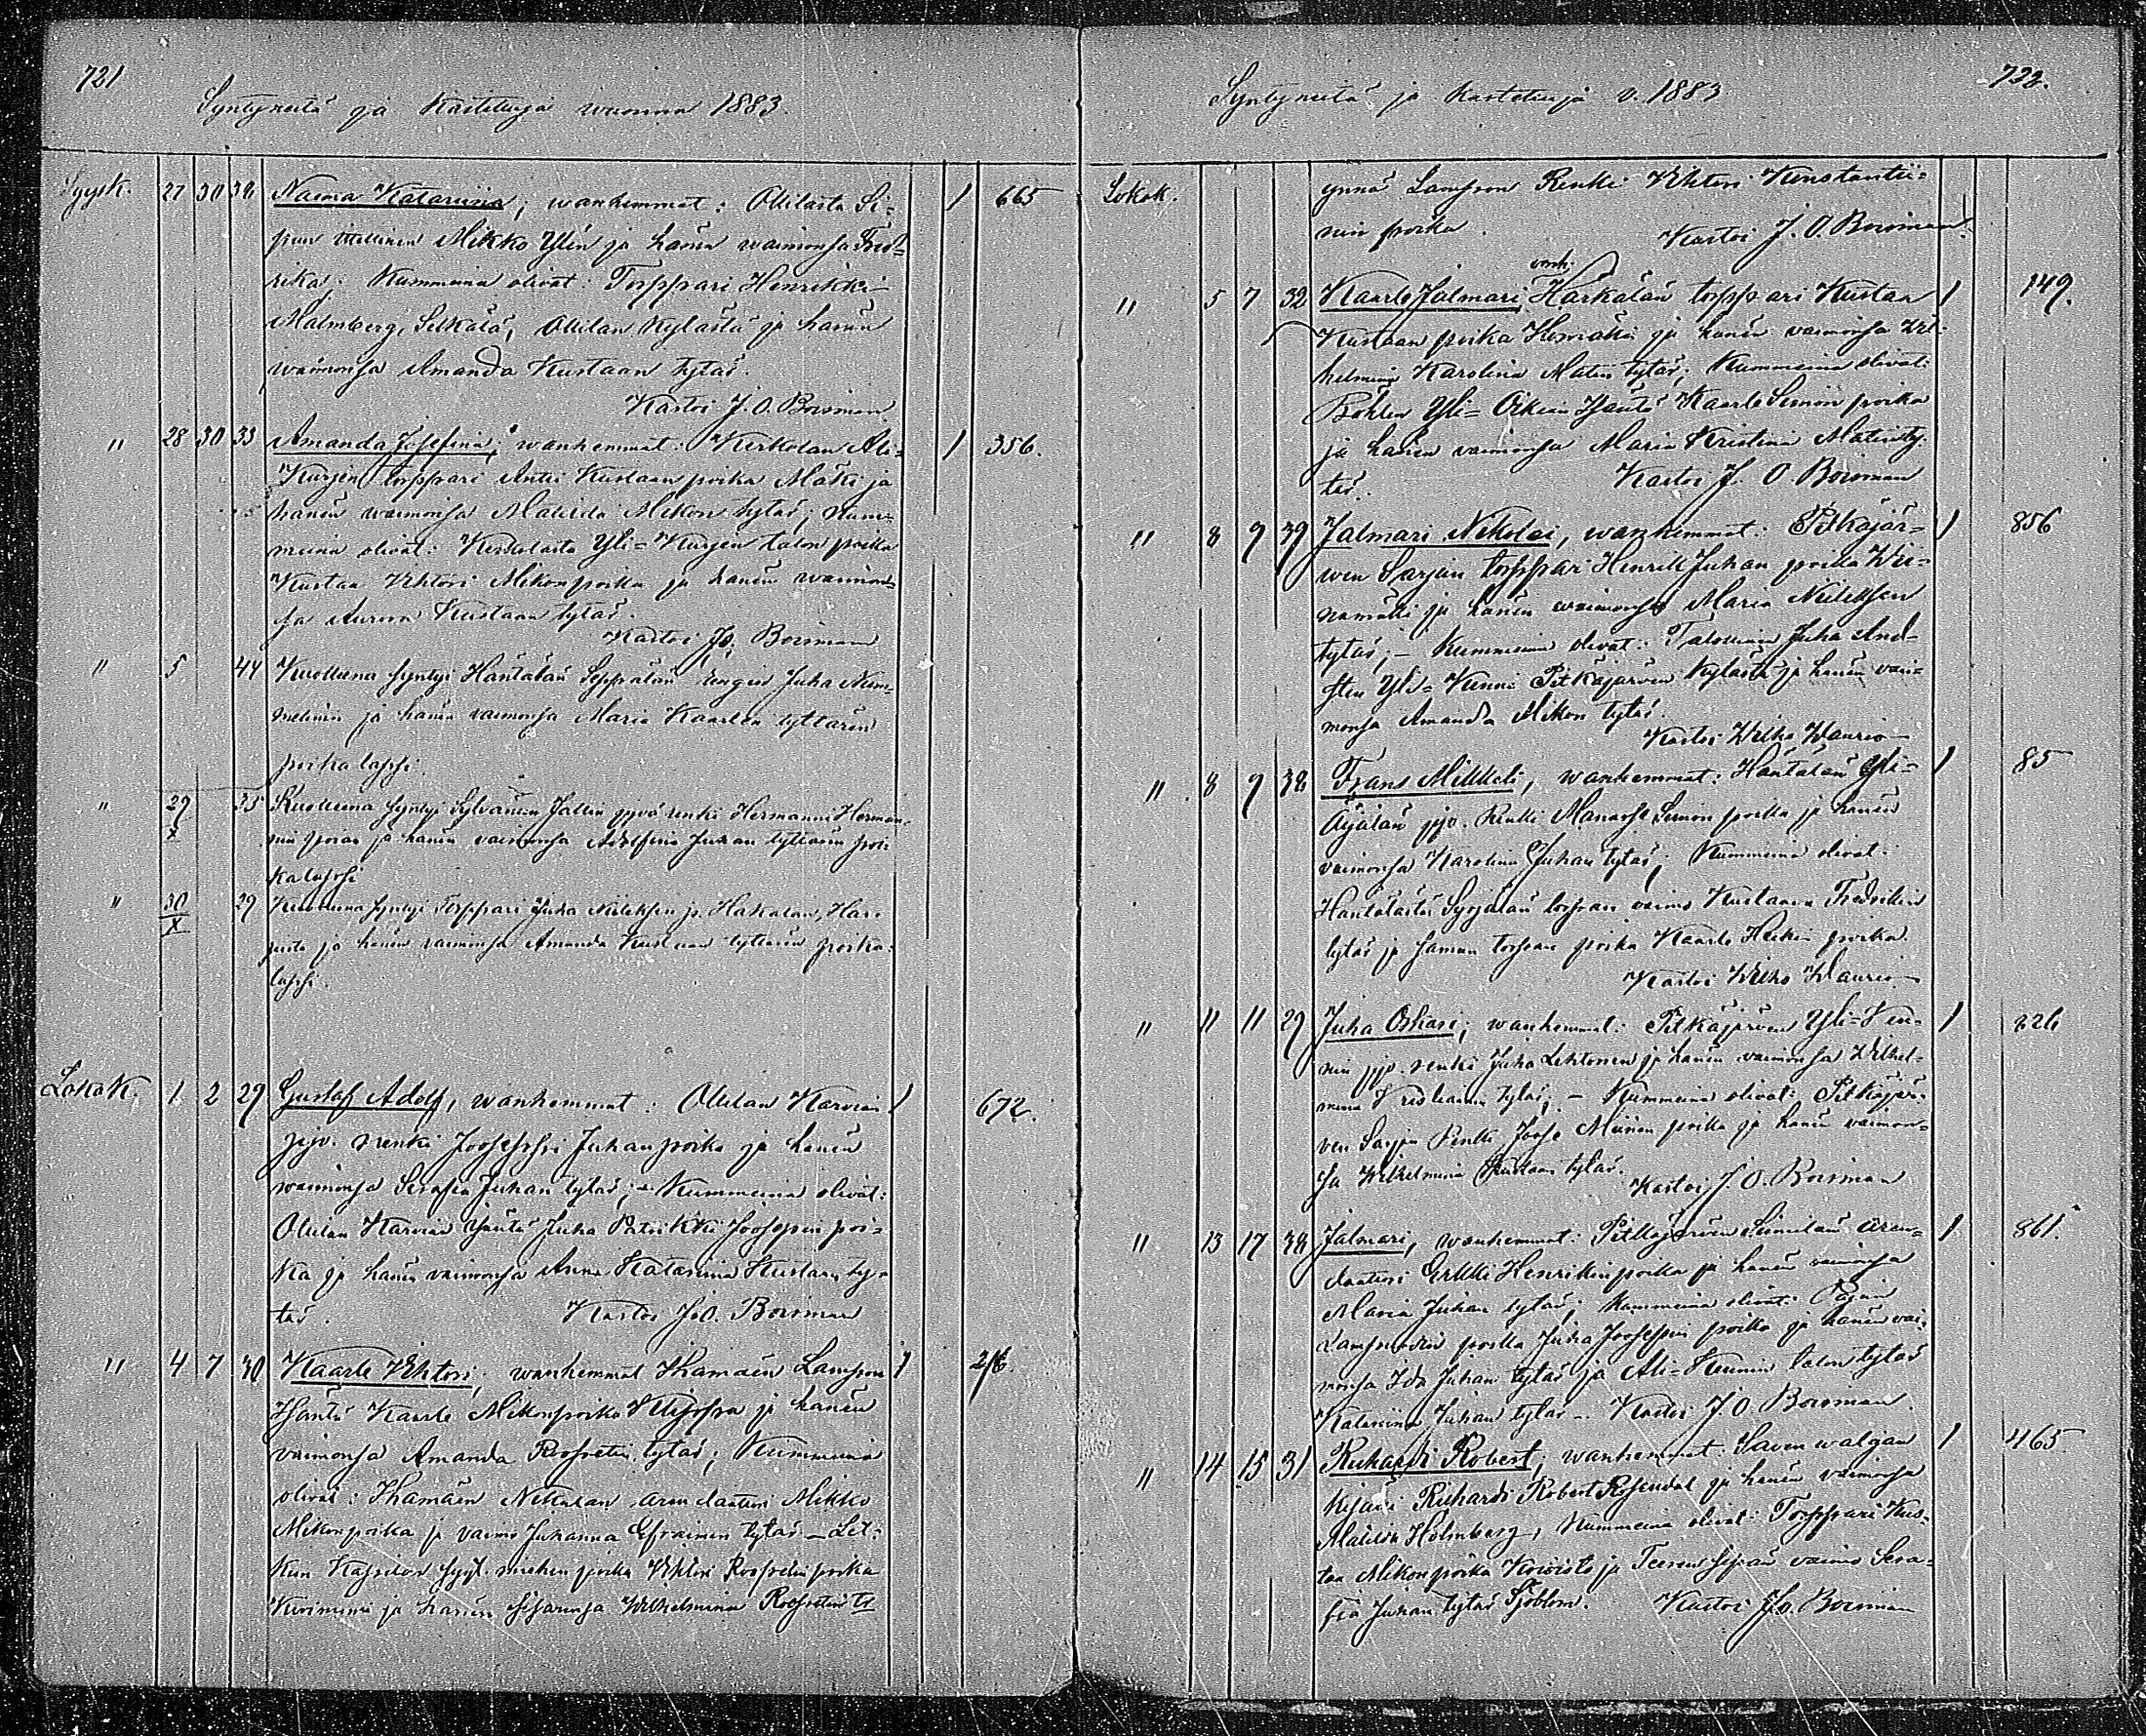 721
Syntyneitä ja Kastetuja wuonna 1883.
Syysk. 27 30 32 Naema Katariina; wanhemmat: Ollilasta Si-
pun Mikko Ylén ja hänen waimonsa Fred-
rika; Kummeina olivat: Torppari Henrikki
Malmberg, Selkälä, Ollilan Kylästä ja hänen
waimonsa Amanda Kustaan tytär. 1 665
Kastoi J. O. Boisman
" 28 30 33 Amanda Josefina; wanhemmat: Kerkolan Ali- 1 356.
Kurjen torppari Antti Kustaan poika Mäki ja
hänen waimonsa Matilda Mikon tytär; Kum-
meina olivat: Kerkolasta Yli-Kurjen talon poika
Kustaa Vihtori Mikonpoika ja hänen waimon-
sa Aurora Kustaan tytär.
Kastoi J. O. Boisman
" 5 44 Kuolleena syntyi Häntälän Seppälän rengin Juha Num-
melinin ja hänen vaimonsa Maria Kaarlen tyttären
poika lapsi.
" 29/X 35 Kuolleena syntyi Sylvänän Jallin pyvä renki Hermanni Herman-
nin pojan ja hänen vaimonsa Adolfina Juhan tyttären poi-
ka lapsi
" 30/X 29 Kuolleena syntyi Torppari Juha Niileksen p. Hakalan, Har-
justa ja hänen vaimonsa Amanda Kustaan tyttären poika-
lapsi.
Lokak. 1 2 29 Gustaf Adolf, wanhemmat: Ollilan Karvian 1 672.
pyv. renki Jooseppi Juhanpoika ja hänen
waimonsa Serafia Juhan tytär; - Kummeina olivat:
Ollilan Karvian Isäntä Juha Patrikki Joosepin poi-
ka ja hänen vaimonsa Anna Katariina Kustaan ty-
tär. Kastoi J. O. Boisman
" 4 7 30 Kaarle Vihtori; wanhemmat Ihamäen Lampson 1 216.
Isäntä Kaarle Mikonpoika ja hänen
vaimonsa Amanda Roopretin tytär; Kummeina
olivat: Ihamäen Nikulan arendaattori Mikko
Mikonpoika ja vaimo Juhanna Efraimin tytär - Let-
kun Kapilan syyt. miehen poika Vihtori Roopretin poika
ja hänen sisarensa Wilhelmina Roopretin tr
722.
Syntyneitä ja Kastetuja v. 1883
Lokak. ynnä Lampson Renki Vihtori Konstantii-
nin poika.
Kastoi J. O. Boisman.
" 5 7 32 Kaarle Jalmari, vanh. Härkälän torppari Kustaa 1 149.
Kustaan poika ja hänen vaimonsa Wil-
helmina Karolina Matin tytär; Kummeina olivat:
Yli-Oikian Isäntä Kaarle Simon poika
ja hänen vaimonsa Maria Kristina Matin ty-
tär. Kastoi J. O Boisman
" 8 9 39 Jalmari Nikolai, wanhemmat: Pitkäjär- 1 856
wen Sarjan torppari Henrik Juhan poika
ja hänen waimonsa Maria Niileksen
tytär; - Kummeina olivat: Talollinen Juha And-
sten Yli-Kunni Pitkäjärven Kylästä ja hänen vai-
monsa Amanda Mikon tytär.
Kastoi Wilho Waurio
" 8 9 38 Frans Mikkeli, wanhemmat: Häntälän Yli- 1 85
Äijälän pyv. Renki Manasse Simon poika ja hänen
vaimonsa Karolina Juhan tytär; Kummeina olivat:
Häntälästä Syrjälän torppari vaimo Kustaava Fredrikin
tytär ja saman torpan poika Kaarle Heikin poika.
Kastoi Wilho Waurio
" 11 11 29 Juha Oskari; wanhemmat: Pitkäjärven Yli- 1 226
pyv. renki Juha Lehtonen ja hänen vaimonsa Wilhel-
mina tytär; - Kummeina olivat: Pitkäjär-
ven Sarjan Renki Joose poika ja hänen vaimon-
sa Wilhelmina Kustaan tytär.
Kastoi J. O. Boisman
" 13 17 38 Jalmari, wanhemmat: Pitkäjärven Simolan aren- 1 861.
daattori Erkki Henrikin poika ja hänen vaimonsa
Maria Juhan tytär; Kummeina olivat:
poika Juha Joosepin poika ja hänen vai-
monsa Ida Juhan tytär ja Ali-Kunnin talon tytär
Katariina Juhan tytär. Kastoi J. O. Boisman.
" 14 15 31 Richardi Robert; wanhemmat: 1 465
Richardi Robert Rosendal ja hänen vaimonsa
Matilda Holmberg, Kummeina olivat: Torppari Kus-
taa Mikonpoika Koivisto ja vaimo Sera-
fia Juhan tytär Sjöblom. Kastoi J. O. Boisman